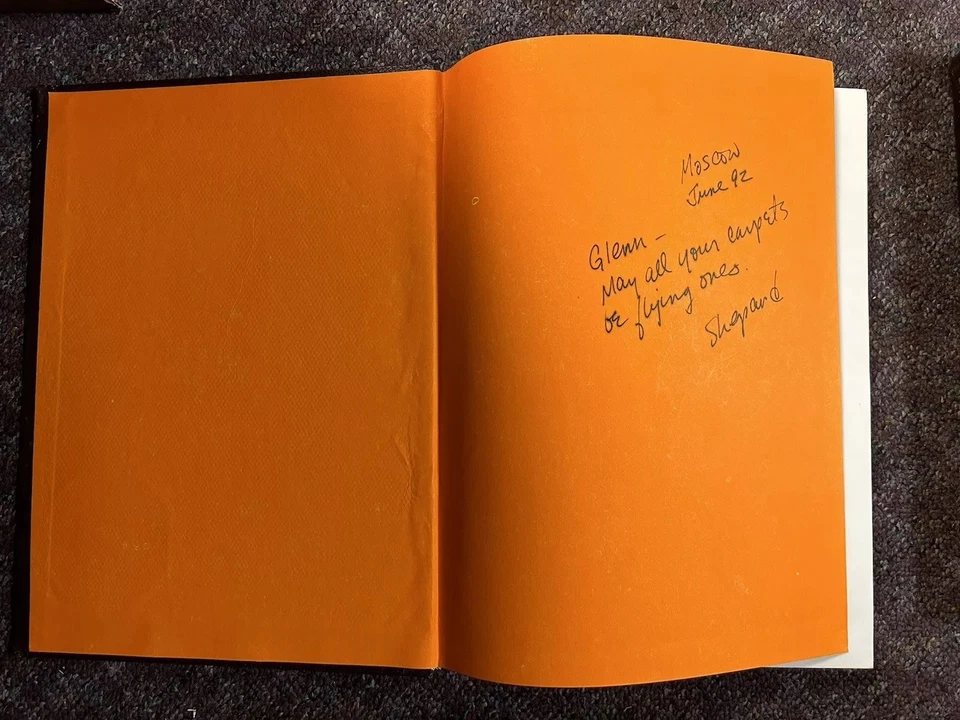 Moscow
June 92
Glenn -
May all your carpets
be flying ones.
Shepard